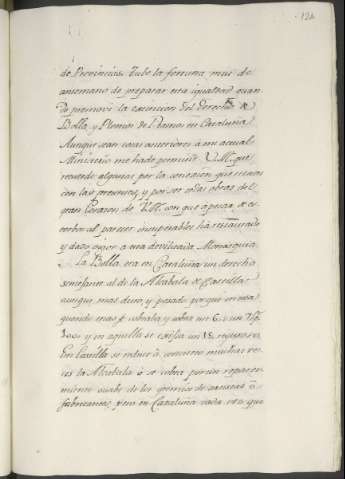 124
de Provincias. Tube la fortuna mui de
antemano de preparar esta igualdad quan
do promoví la extincion del derecho de
Bolla, y Plomos de Ramos en Cataluña.
Aunque sean cosas anteriores á mi actual
Ministerio me hade permitir V.M. que
recuerde algunas por la conexion que tienen
con las presentes, y por ser todas obras del
gran Corazon de V.M. con que apesar de es
torbos al parecer insuperables há restaurado
y dado vigor a una devilitada Monarquia.
La Bolla era en Cataluña un derecho
semejante al de la Alcabala de Castilla
aunque mas duro, y pesado porque en esta
quando mas se cobraba, y cobra un 6, ò un 7 p%
y en aquella se exigia un 15
En Castilla se reduce á concierto muchas ve
ces la Alcabala ò se cobra por un reparti
miento suabe de los gremios de artistas ò
fabricantes, pero en Cataluña cada vez que